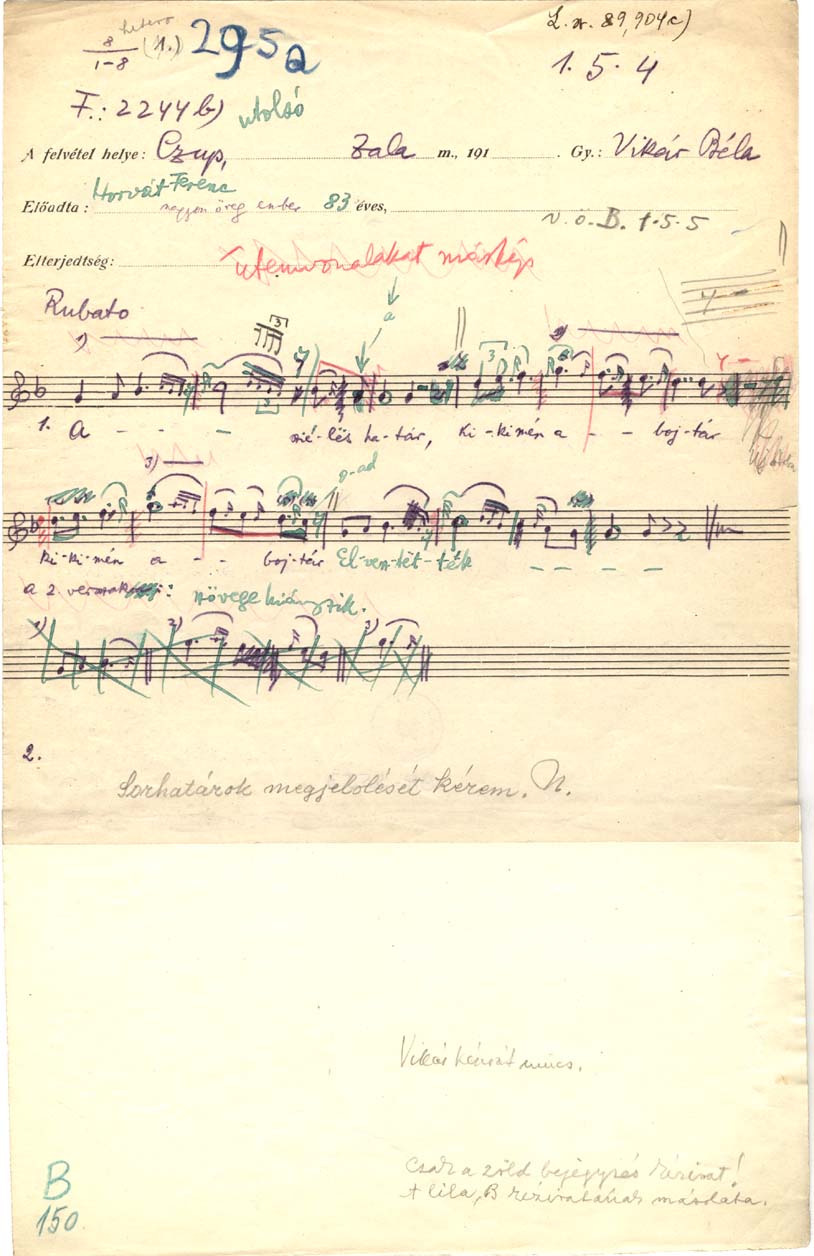 hetero
8
1-8
(1.)
295a
L. sz. 89,904c)
1. 5. 4
F.: 2244b) utolsó
A felvétel helye: Czup, Zala m., 191 . Gy.: Vikár Béla
Horvát Ferenc
Előadta: nagyon öreg ember 83 éves,
V. ö. B. 1.5.5
Elterjedtség:
ütemvonalakat másképp
a
Rubato
1)
3
2)
3
1. A - - - szé-lës ha-tár, Ki-ki-mén a - - boj-tár
3)
g-ad
Ki-ki-mén a - - boj-tár El-ven-tët-ték - - - -
a 2. versszak szövege hiányzik.
1) 2) 3)
2.
Sorhatárok megjelölését kérem. N.
Vikár nincs.
Csak a zöld bejegyzés kézirat!
A lila, B kéziratának másolata.
B
150